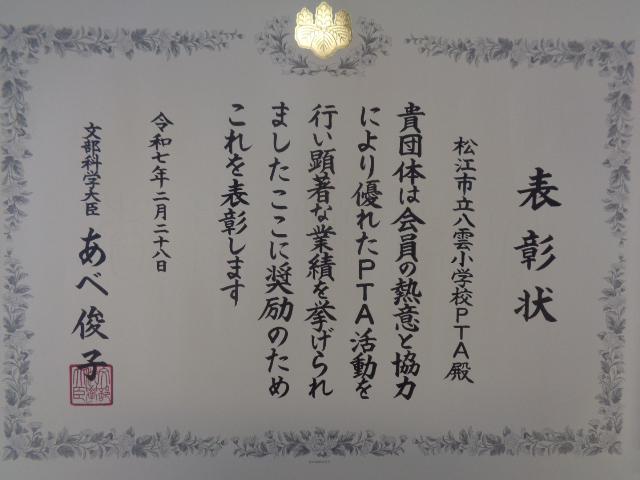 表彰状
松江市立八雲小学校PTA殿
貴団体は会員の熱意と協力
により優れたPTA活動を
行い顕著な業績を挙げられ
ましたここに奨励のため
これを表彰します
令和七年二月二十八日
文部科学大臣 あべ俊子